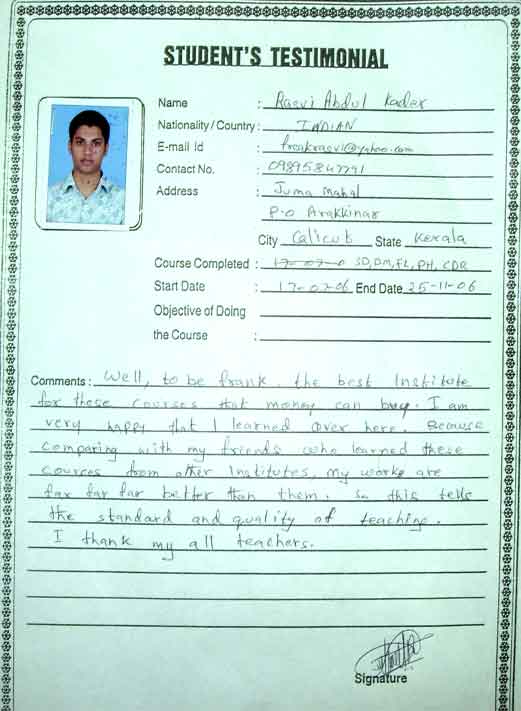 STUDENT'S TESTIMONIAL
Name : Raevi Abdul Kader
Nationality / Country : INDIAN
E-mail Id : freakraevi@yahoo.com
Contact No. : 09895847791
Address : Juma Mahal
P.O Arakkinar
City Calicut State Kerala
Course Completed : 17-07-0 SD, DM, FL, PH, CDR
Start Date : 17-07-06 End Date 25-11-06
Objective of Doing
the Course :
Comments : Well, to be frank, the best Institute
for these courses that money can buy. I am
very happy that I learned over here. Because
comparing with my friends who learned these
courses from other Institutes, my works are
far far far better than them. So this tells
the standard and quality of teaching.
I thank my all teachers.
Signature